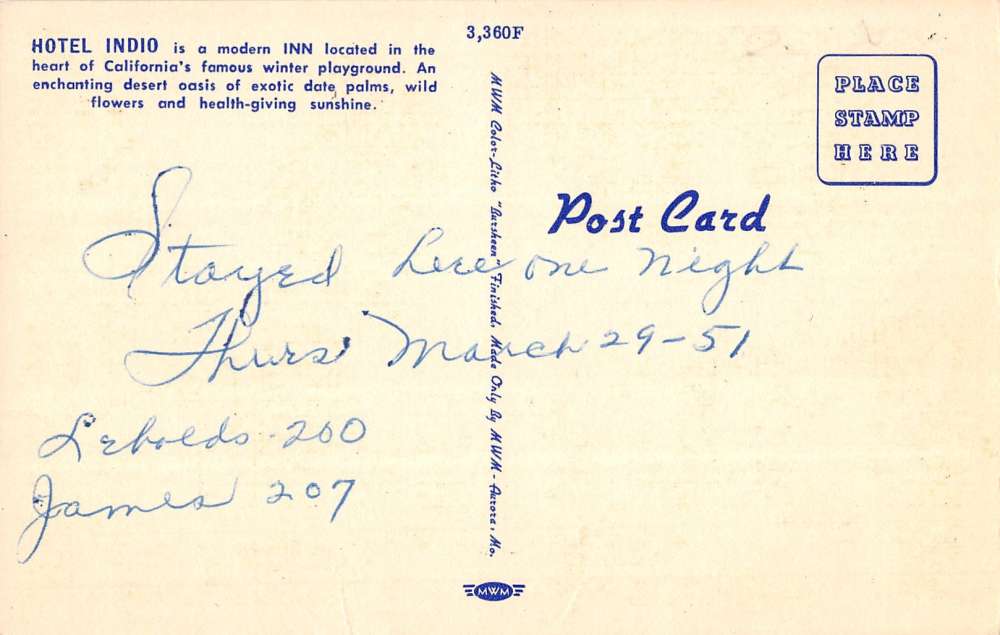 3,360F
HOTEL INDIO is a modern INN located in the
heart of California's famous winter playground. An
enchanting desert oasis of exotic date palms, wild
flowers and health-giving sunshine.
PLACE
STAMP
HERE
Post Card
Stayed here one Night
Thurs March 29-51
Lebolds - 200
James 207
MWM Color-Litho "Bursheen" Finished. Made Only By MWM - Aurora, Mo.
MWM